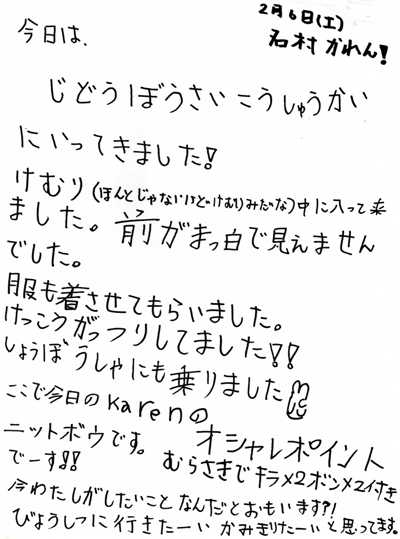 2月6日(土)
石村かれん!
今日は、
じどうぼうさいこうしゅうかい
にいってきました!
けむり(ほんとじゃないけどけむりみたいな)中に入って来
ました。前がまっ白で見えません
でした。
服も着させてもらいました。
けっこうがっつりしてました!!
しょうぼうしゃにも乗りました
ここで今日のKarenの
オシャレポイント
ニットボウです。
むらさきでキラメ2ボンメ2付き
でーす!!
今わたしがしたいことなんだとおもいます?!
びょうしつに行きたーいかみきりたーいと思ってます。